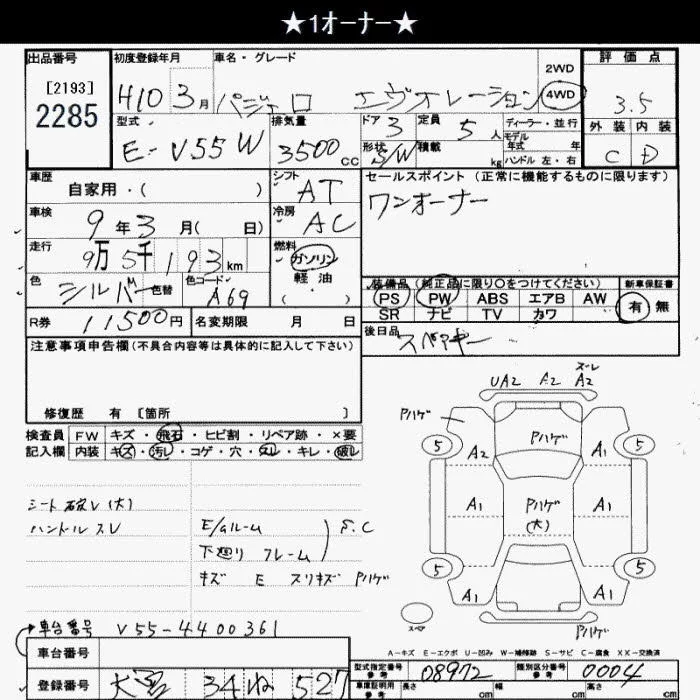 ★1オーナー★
出品番号 初度登録年月 車名・グレード 2WD 評価点
[2193]
2285 H10 3月 パジェロ エヴォレーション 4WD 3.5
型式 排気量 ドア 定員 ディーラー・並行 外装 内装
E-V55W 3500cc 3 5人 モデル年式 年
形状 S/W 積載 kg ハンドル 左・右 C D
車歴 自家用・( ) シフト AT セールスポイント(正常に機能するものに限ります)
車検 9年3月( 日) 冷房 AC ワンオーナー
走行 9万5千193km 燃料 ガソリン
軽油・( )
色 シルバーM 色替 色コード A69
装備品(純正品に限り○をつけてください) 新車保証書
PS PW ABS エアB AW 有 無
SR ナビ TV カワ
R券 11500円 名変期限 月 日 後日品 スペアキー
注意事項申告欄(不具合内容等は具体的に記入して下さい)
修復歴 有 [箇所 ]
検査員 FW キズ・飛石・ヒビ割・リペア跡・×要
記入欄 内装 キズ・汚レ・コゲ・穴・スレ・キレ・破レ
シート破レ(大)
ハンドルスレ
E/gルーム
下廻り フレーム S.C
キズ E スリキズ Pハゲ
ズレ
UA2 A2 A2
Pハゲ
5 Pハゲ 5
A2 A1
A1 Pハゲ(大) A1
5 5
A1 A1
スペア Pハゲ
車台番号 V55-4400361
A-キズ E-エクボ U-凹み W-補修跡 S-サビ C-腐食 XX-交換済
車台番号 型式指定番号 参考 08972 類別区分番号 参考 0004
登録番号 大宮 34 ね 527 車庫証明用 参考 長さ cm 幅 cm 高さ cm